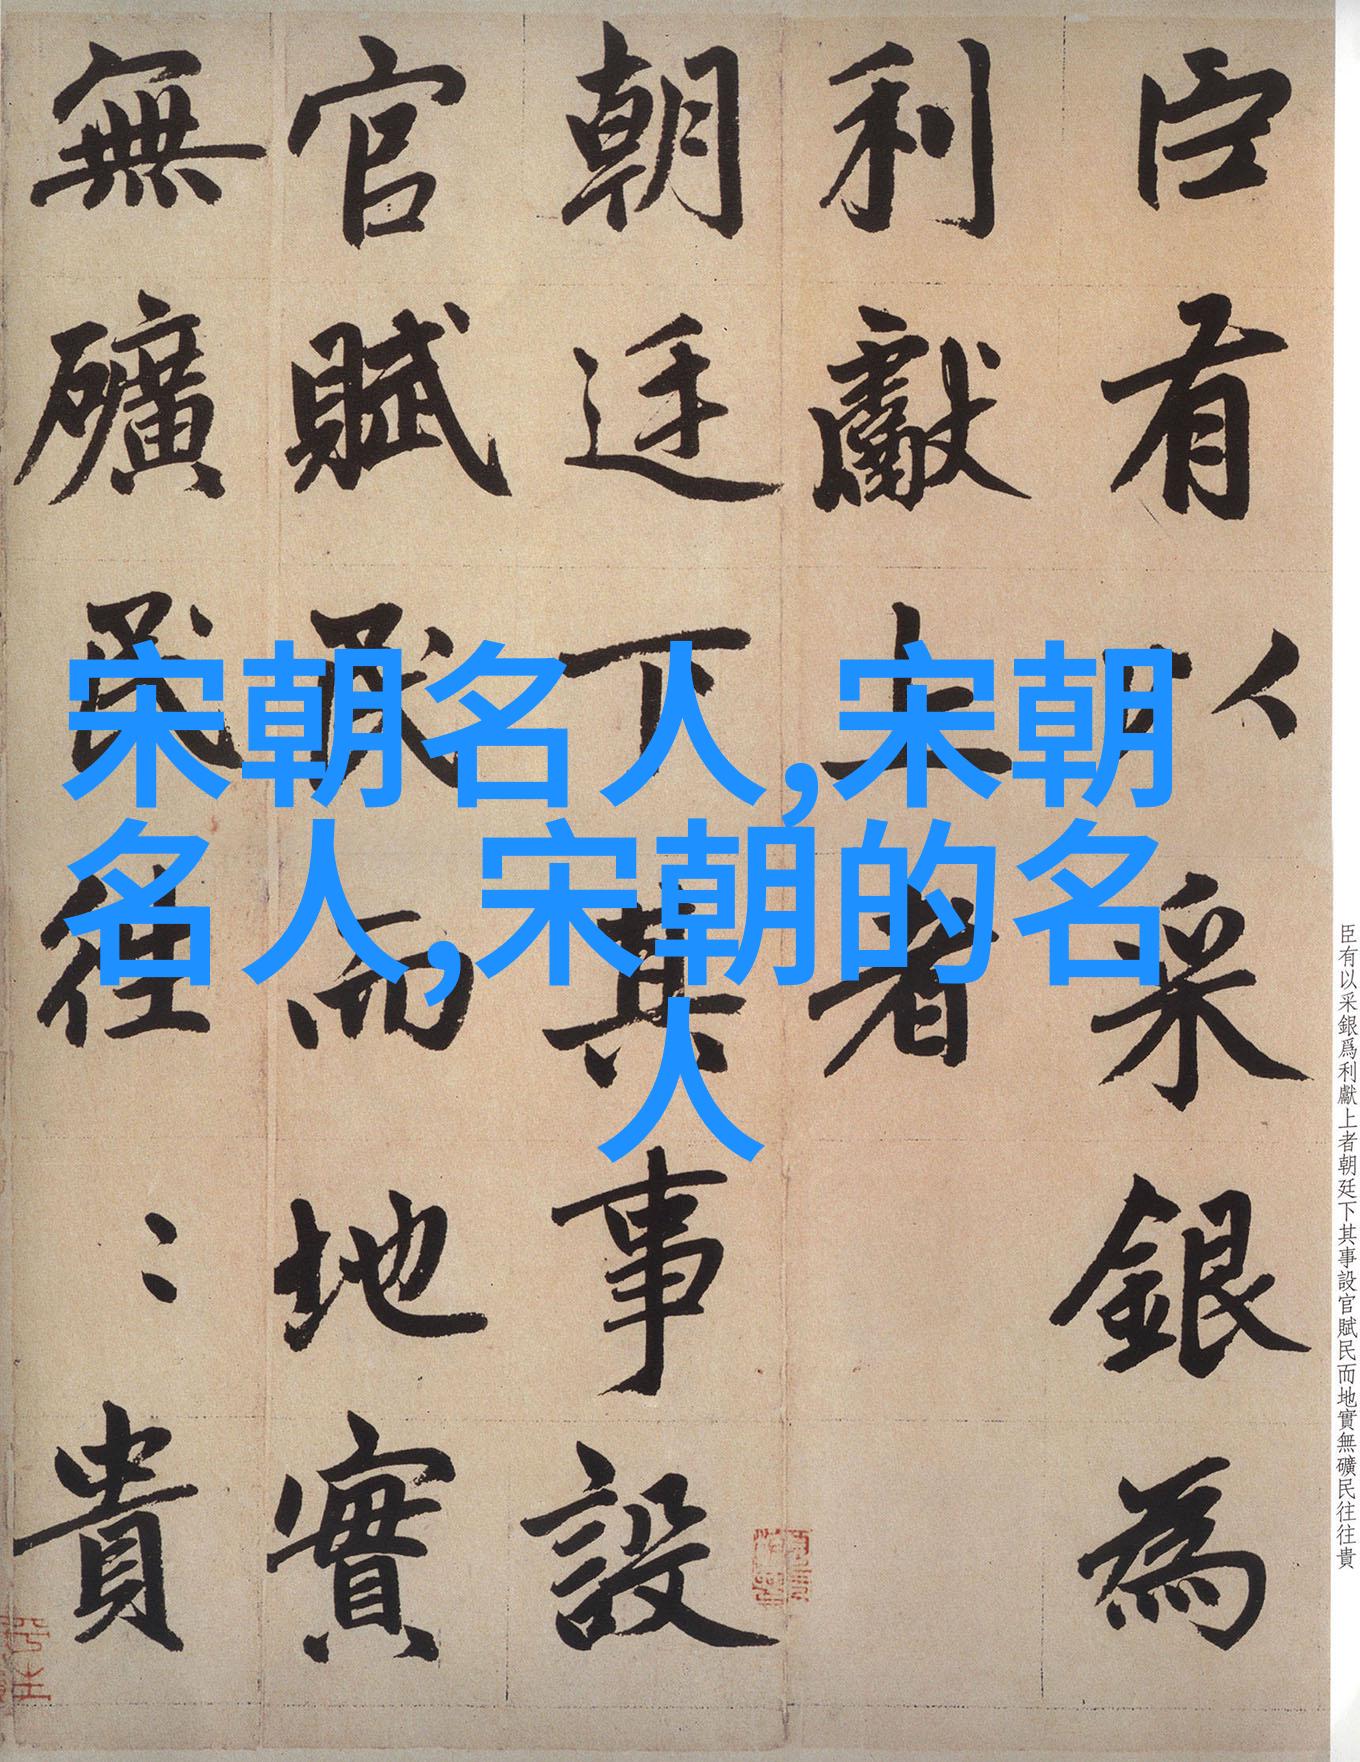 臣有以采銀為
利獻上者
朝廷下其事設
官賦民而地實
無礦民往〻貴
宋朝名人,宋朝
名人,宋朝的名
人
臣有以采銀爲利獻上者朝廷下其事設官賦民而地實無礦民往往貴